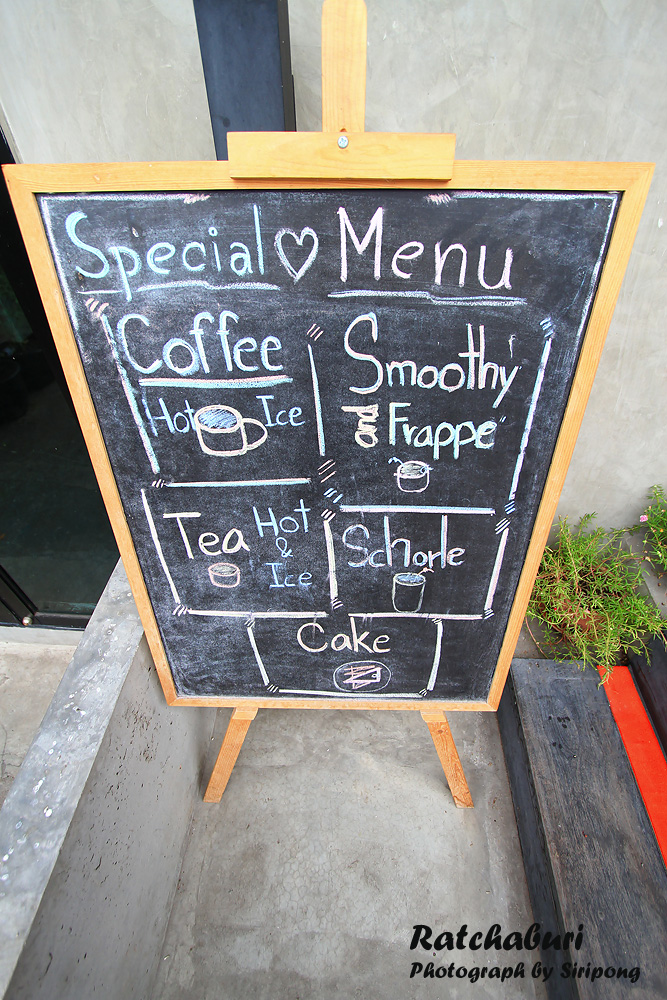 Special Menu
Coffee
Hot Ice
Smoothy
and Frappe
Tea
Hot
&
Ice
Schorle
Cake
Ratchaburi
Photograph by Siripong